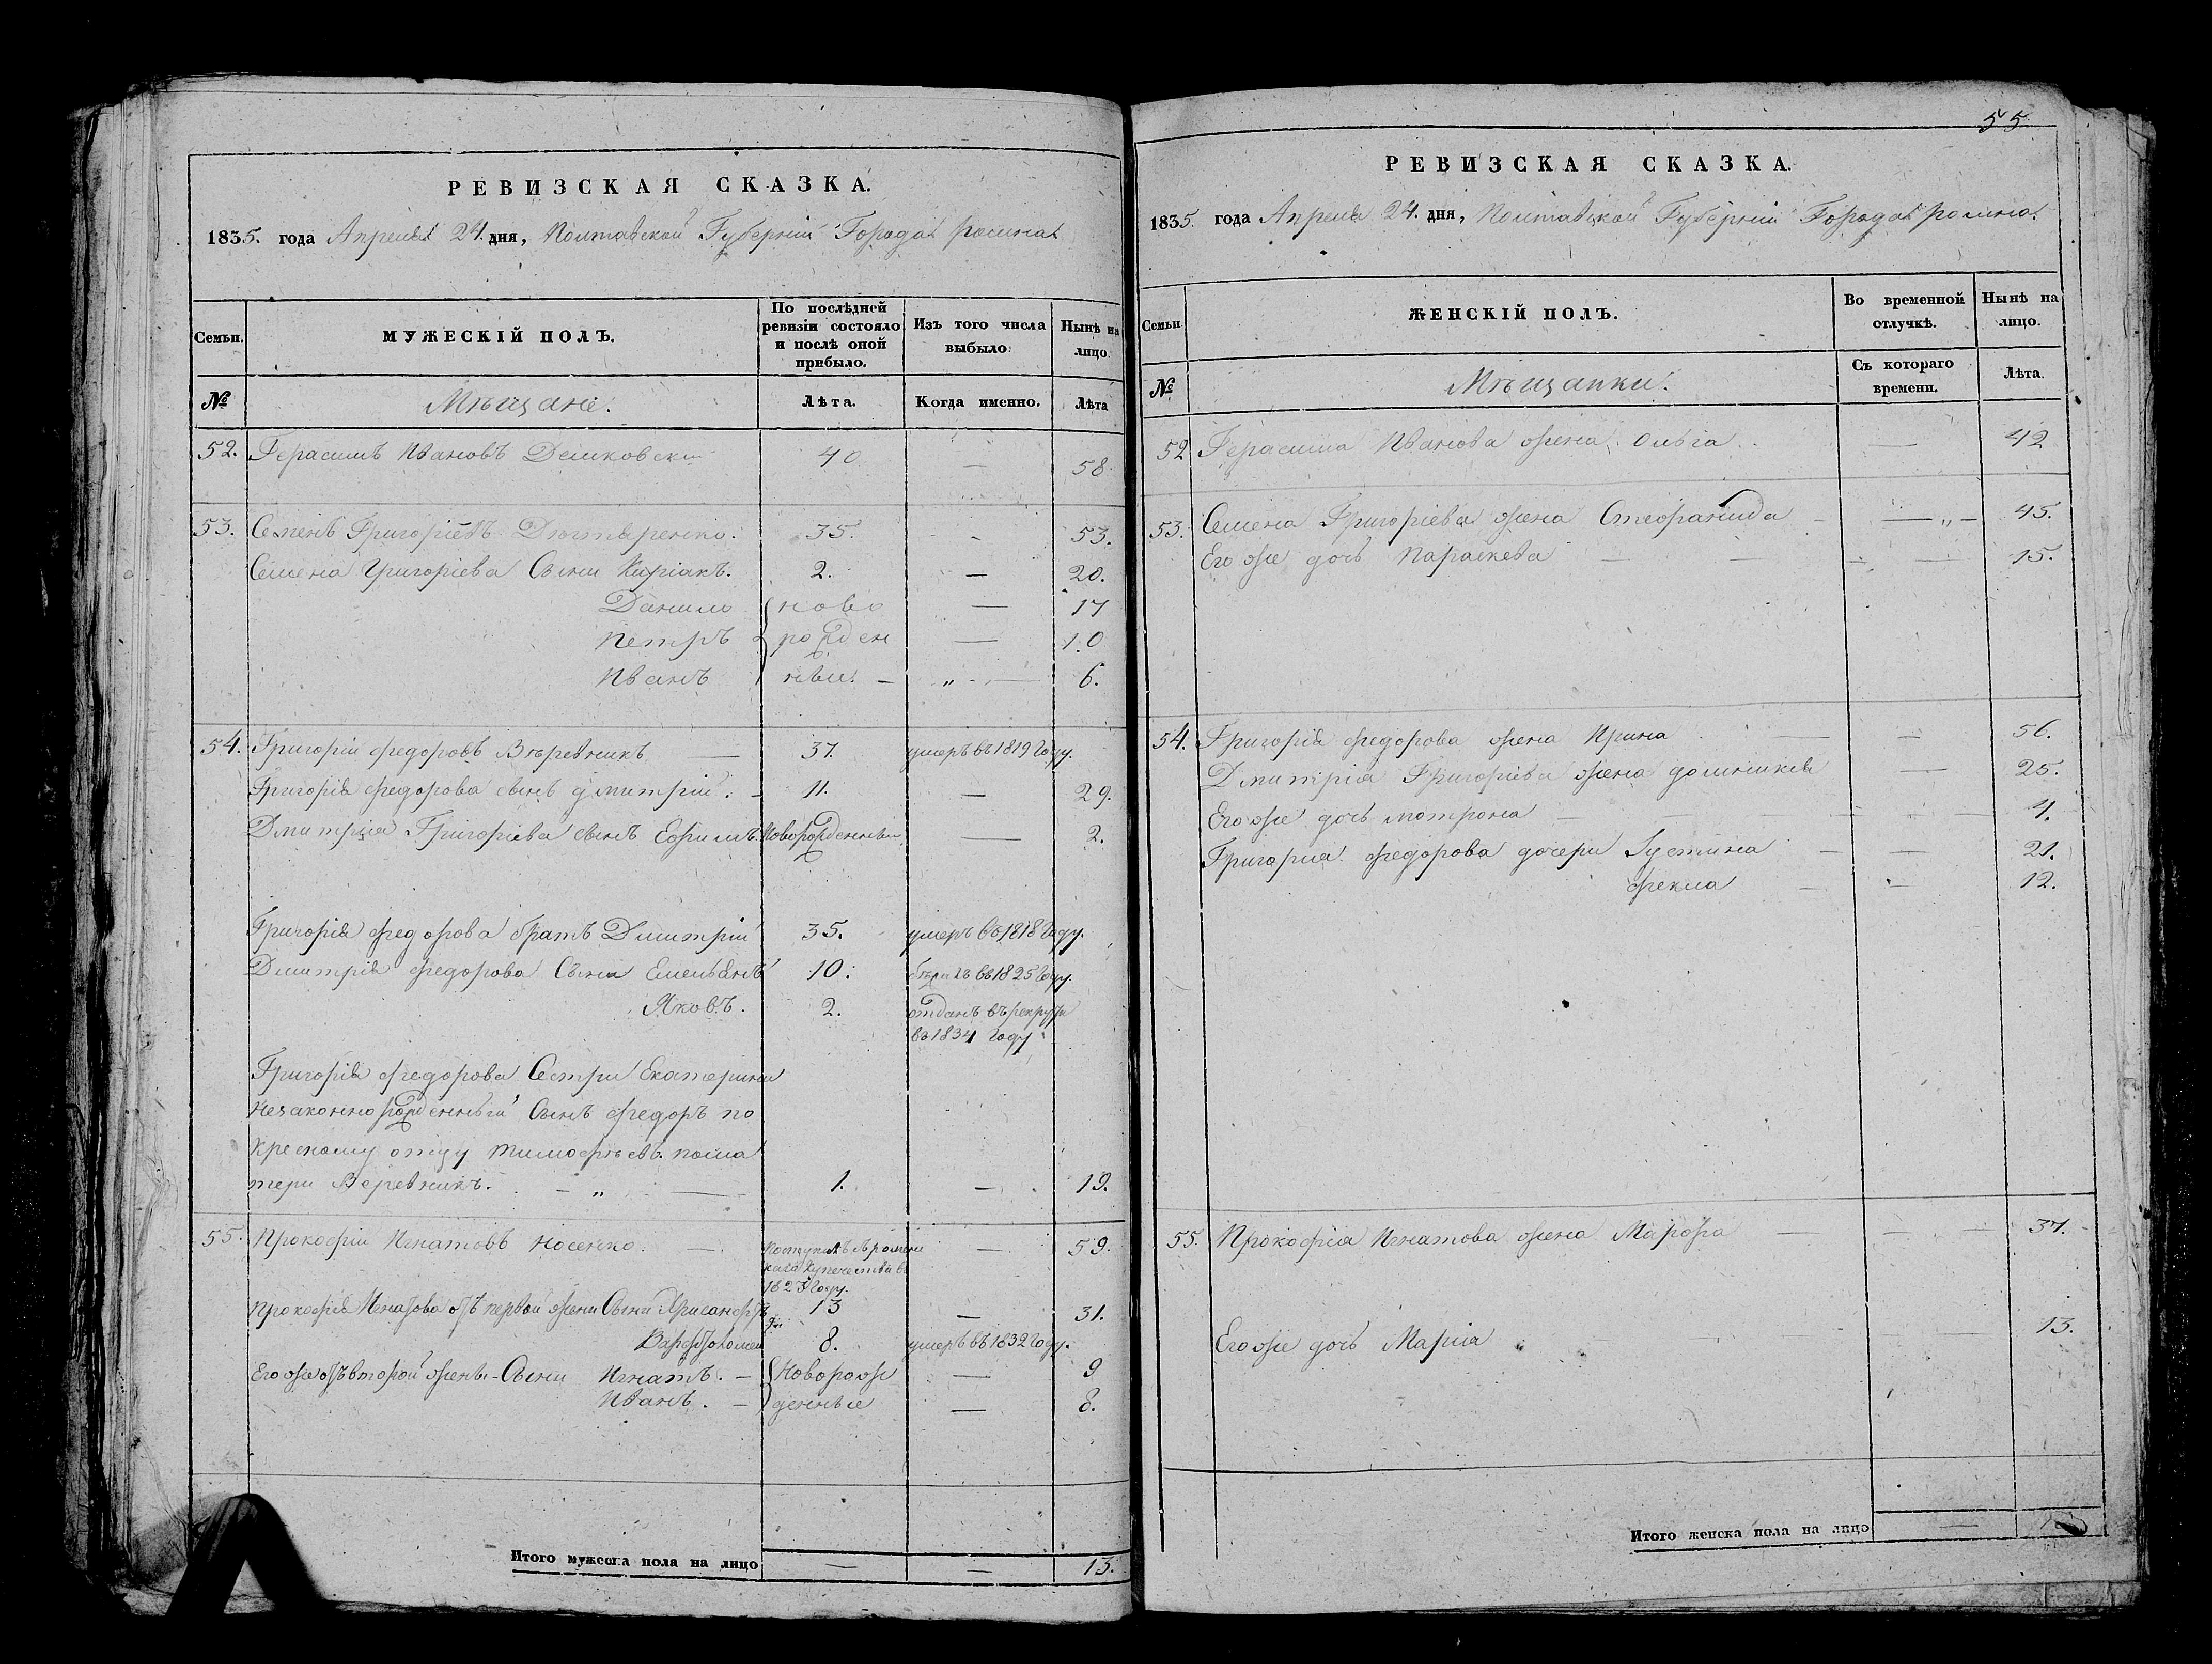 РЕВИЗСКАЯ СКАЗКА.
1835. года Апреля 24. дня, Полтавской Губерніи Города Ромна
Семьи.
МУЖЕСКІЙ ПОЛЪ.
По послѣдней ревизіи состояло и послѣ оной прибыло.
Изъ того числа выбыло.
Нынѣ на лицо.
№
Мѣщане.
Лѣта.
Когда именно.
Лѣта
52. Герасимъ Ивановъ 40 — 58.
53. Семенъ Григоріевъ 35. - 53.
Семена Григоріева Сыни Киріакъ. 2. — 20.
Данило ново — 17
Петръ рожден — 10
Иванъ ныи. — „ — 6.
54. Григорій Федоровъ Вѣревникъ — 37. умеръ въ 1819 Году.
Григорія Федорова сынъ Дмитрій. - 11. — 29.
Дмитрія Григоріева сынъ Ефимъ. Новорожденный — 2.
Григорія Федорова братъ Дмитрій 35. умеръ въ 1818 Году.
Дмитрія Федорова Сыни Емельянъ 10. въ 1825 Году.
Яковъ. 2. отданъ въ рекруты
въ 1834 Году
Григорія Федорова Сестри Екатерини
незаконнорожденный Сынъ Федоръ по
крестному отцу Тимофѣевъ. пома
тери Веревникъ. - „ — 1. — 19.
55. Прокофій Игнатовъ Носенко. — 59.
1823 Году.
Прокофія Игнатова отъ первой жени Сыни Хрисанфъ 13 — 31.
Варфоломей 8. умеръ въ 1832 Году.
Его же отъ второй жены - Сыни Игнатъ. — Новорож — 9
Иванъ. — денные — 8.
Итого мужеска пола на лицо — — 13.
55
РЕВИЗСКАЯ СКАЗКА.
1835. года Апреля 24. дня, Полтавской Губерніи Города Ромна
Семьи.
ЖЕНСКІЙ ПОЛЪ.
Во временной отлучкѣ.
Нынѣ на лицо.
№
Мѣщанки.
Съ котораго времени.
Лѣта.
52 Герасима Иванова жена Ольга — 42
53. Семена Григоріева жена Стефанида — „ — 45.
Его же дочь Параскева — — 15.
54. Григорія Федорова жена Ирина — — 56.
Дмитрія Григоріева жена Домникія — 25.
Его же дочь Мотрона — —
Григорія Федорова дочери Густина — — 21.
Фекла — — 12.
55. Прокофія Игнатова жена Марфа — — 37.
Его же дочь Марія — — 13.
Итого женска пола на лицо —